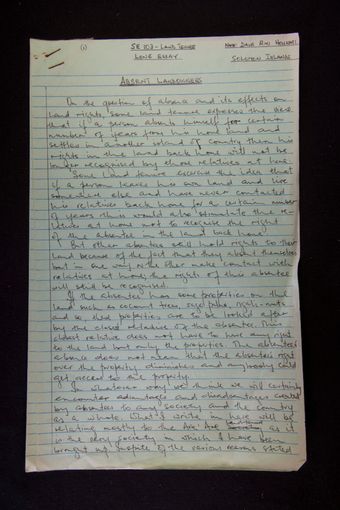 (i) SE 203 - LAND TENURE NAME DAVE RIKI
LONG ESSAY SOLOMON ISLANDS
ABSENT LANDOWNERS
On the question of absence and its effects on
land rights some land tenure expresses the view
that if a person absents himself for certain
number of years from his home island and
settles in another island or country then his
rights in the land back home will not be
longer recognised by those relatives at home.
Some land tenure exercise the idea that
if a person leaves his own land and live
somewhere else and have never contacted
his relatives back home for a certain number
of years this would also stimulate the re-
latives at home not to recognise the right
of the absentee in the land back home.
But other absentees still hold rights to their
land because of the fact that they absent themselves
but in one way or the other make contact with
relatives at home, the rights of this absentee
will still be recognised.
If the absentee has some properties on the
land such as coconut trees, sago palms,
and so, these properties are to be looked after
by the closest relative of the absentee. This
closest relative does not have to have any right
to the land but only the properties. The absentee's
absence does not mean that the absentee's right
over the property diminishes and anybody could
get access to the property.
In whatever way we think we will certainly
encounter advantages and disadvantages created
by absentees to any society and the country
as a whole. What I write in here will be
relating mostly to the Are'Are as it
is the very society in which I have been
brought up. of the various reasons stated